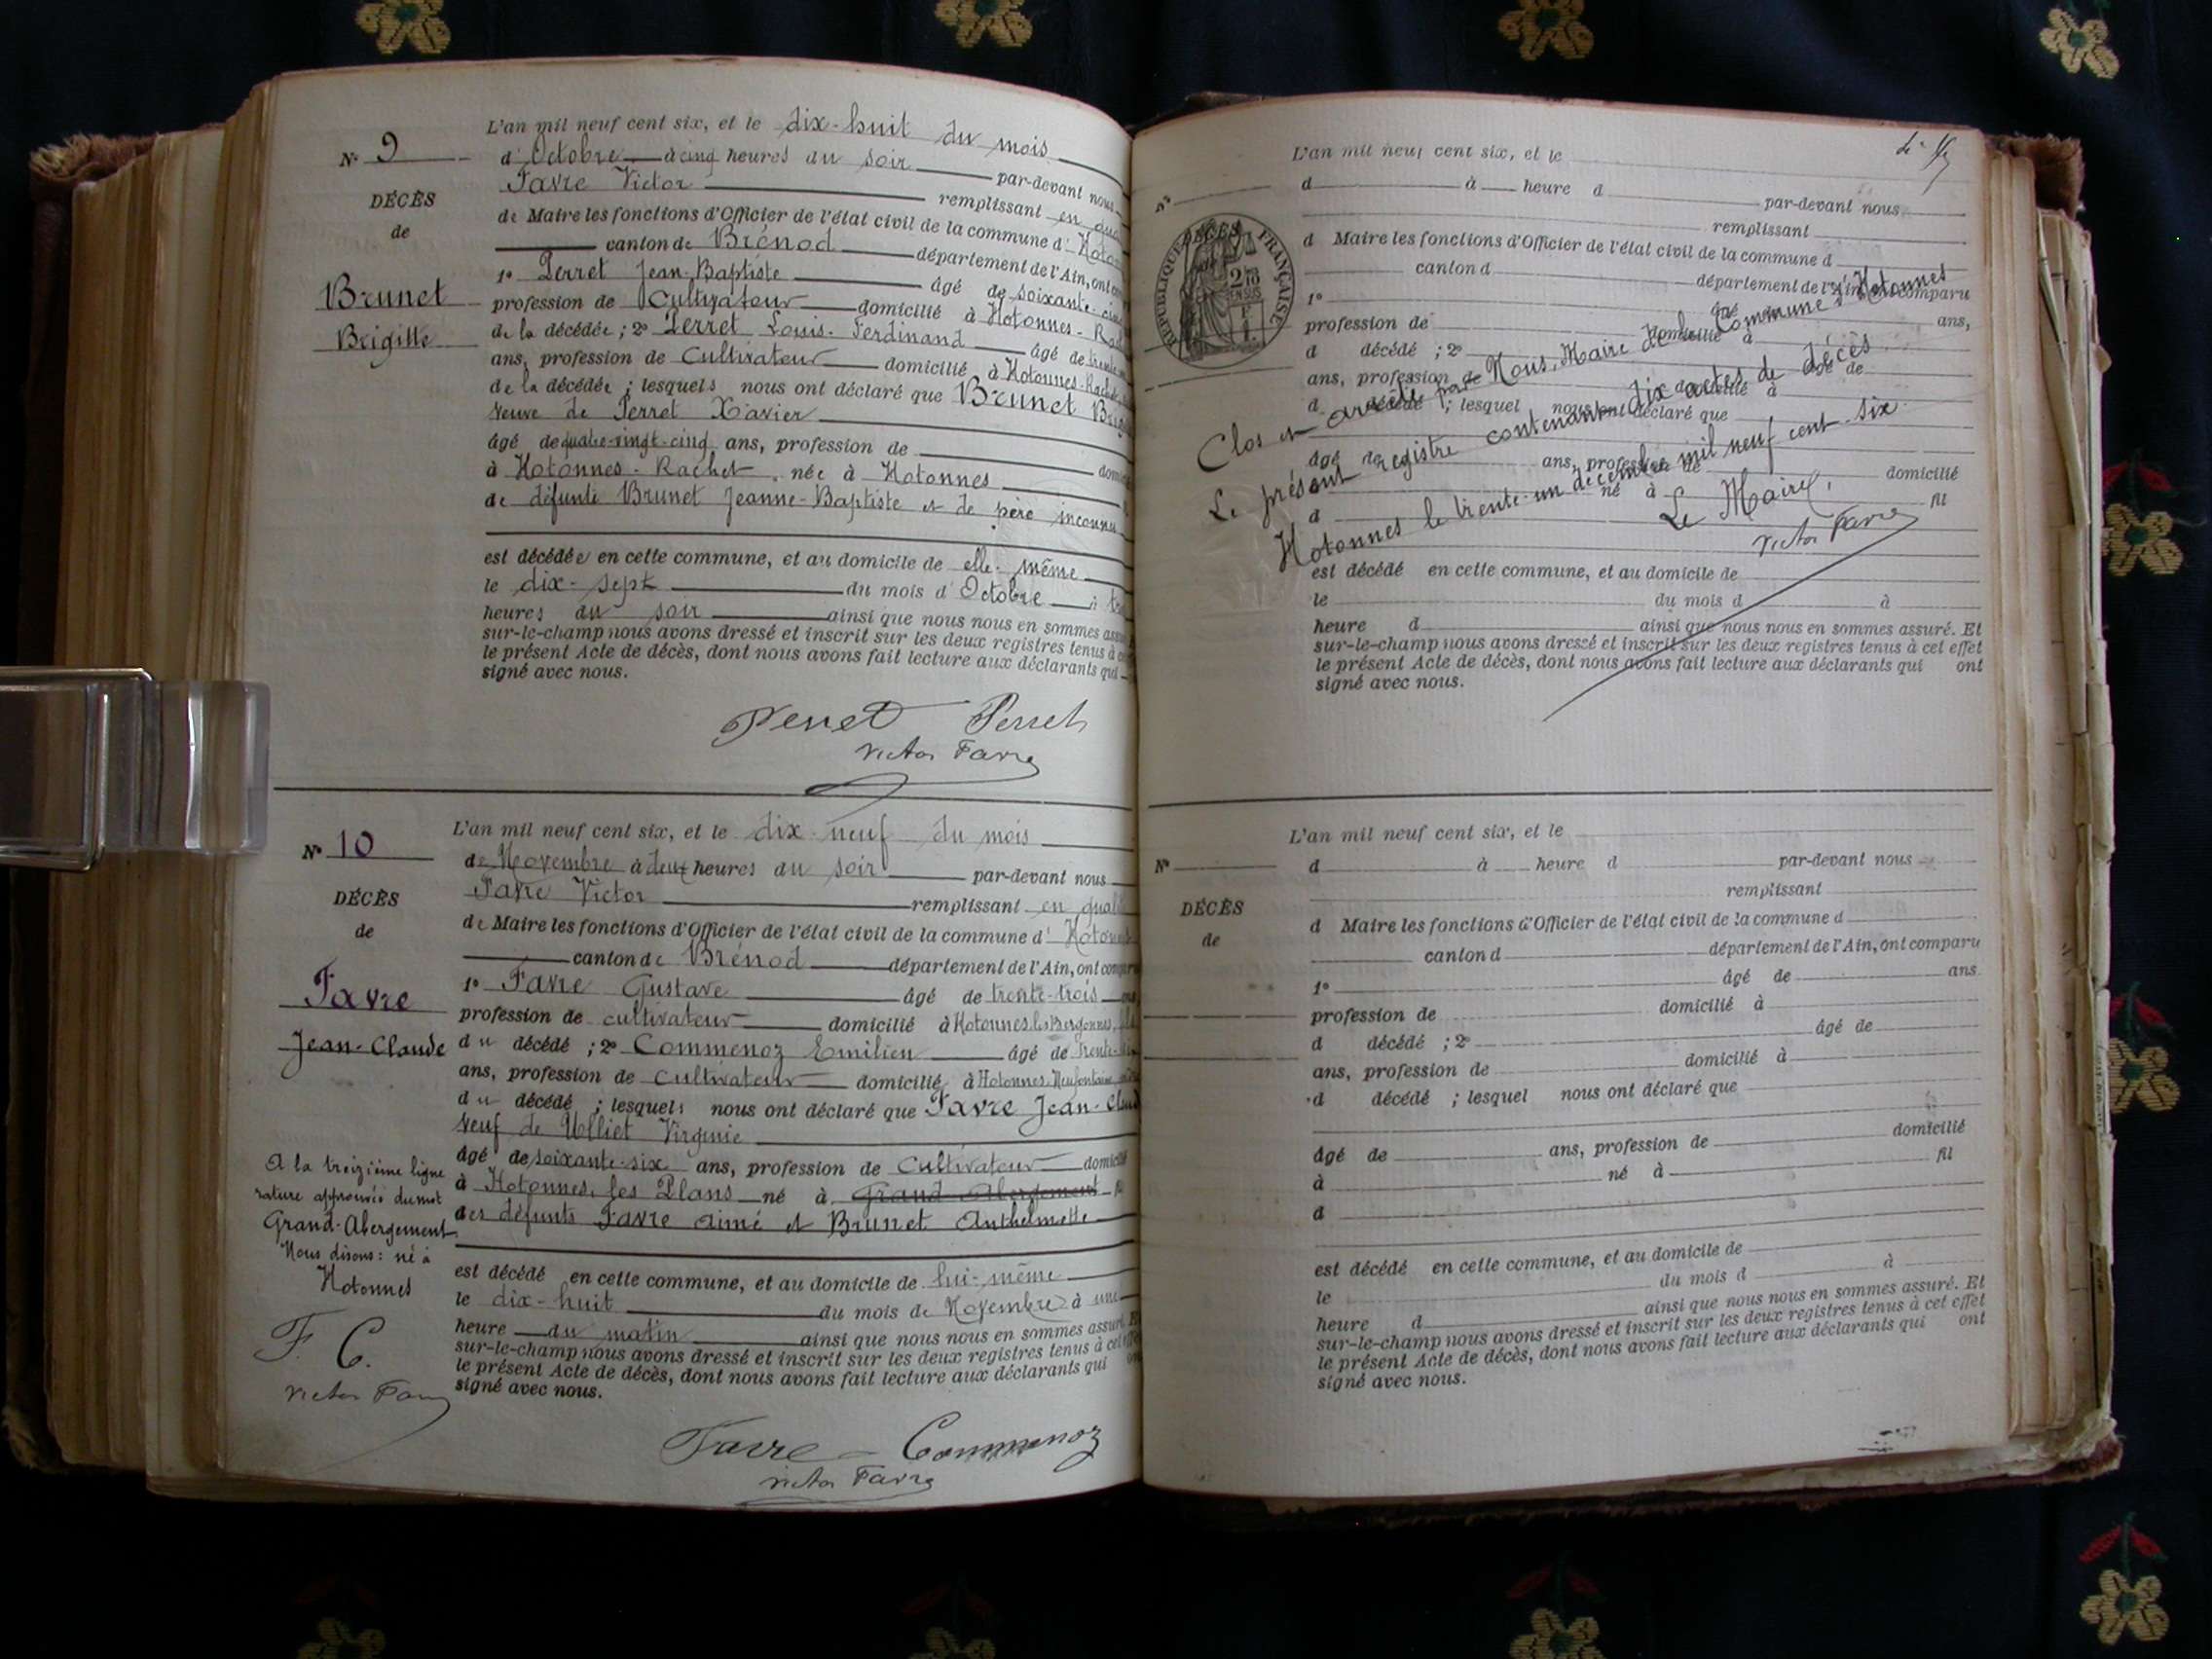 N° 9
DÉCÈS
de
Brunet
Brigitte
L'an mil neuf cent six, et le dix-huit du mois
d'Octobre à cinq heures du soir par-devant nous
Favre Victor remplissant en
de Maire les fonctions d'Officier de l'état civil de la commune d'
canton de Brénod département de l'Ain, ont
1° Perret Jean-Baptiste âgé de soixante-
profession de Cultivateur domicilié à Hotonnes-
de la décédée ; 2° Perret Louis-Ferdinand âgé de
ans, profession de Cultivateur domicilié à Hotonnes-
de la décédée ; lesquels nous ont déclaré que Brunet
veuve de Perret Xavier
âgé de quatre-vingt-cinq ans, profession de
à Hotonnes-Rachet née à Hotonnes
de défunte Brunet Jeanne-Baptiste et de père inconnu
est décédée en cette commune, et au domicile de elle-même
le dix-sept du mois d'Octobre à
heures du soir ainsi que nous nous en sommes
sur-le-champ nous avons dressé et inscrit sur les deux registres tenus à
le présent Acte de décès, dont nous avons fait lecture aux déclarants qui
signé avec nous.
Perret Perret
Victor Favre
N° 10
DÉCÈS
de
Favre
Jean-Claude
L'an mil neuf cent six, et le dix-neuf du mois
de Novembre à deux heures du soir par-devant nous
Favre Victor remplissant en
de Maire les fonctions d'Officier de l'état civil de la commune d'
canton de Brénod département de l'Ain, ont
1° Favre Gustave âgé de trente-trois
profession de cultivateur domicilié à Hotonnes, les Bergonnes,
du décédé ; 2° Commenoz Emilien âgé de trente-
ans, profession de Cultivateur domicilié à Hotonnes,
du décédé ; lesquels nous ont déclaré que Favre Jean-
veuf de Ulliet Virginie
âgé de soixante-six ans, profession de Cultivateur
à Hotonnes, les Plans né à Grand-Abergement
des défunts Favre Aimé et Brunet Anthelmette
est décédé en cette commune, et au domicile de lui-même
le dix-huit du mois de Novembre à une
heure du matin ainsi que nous nous en sommes
sur-le-champ nous avons dressé et inscrit sur les deux registres tenus à cet
le présent Acte de décès, dont nous avons fait lecture aux déclarants qui
signé avec nous.
A la treizième ligne
rature approuvée du mot
Grand-Abergement
Nous disons : né à
Hotonnes
F. C.
Victor Favre
Favre Commenoz
Victor Favre
L'an mil neuf cent six, et le
d à heure d par-devant nous
remplissant
d Maire les fonctions d'Officier de l'état civil de la commune d
canton d département de l'Ain, ont comparu
1° âgé de ans,
profession de domicilié à
d décédé ; 2° âgé de
ans, profession de domicilié à
d décédé ; lesquel nous ont déclaré que
âgé de ans, profession de domicilié
né à fil
d
est décédé en cette commune, et au domicile de
le du mois d à
heure d ainsi que nous nous en sommes assuré. Et
sur-le-champ nous avons dressé et inscrit sur les deux registres tenus à cet effet
le présent Acte de décès, dont nous avons fait lecture aux déclarants qui ont
signé avec nous.
RÉPUBLIQUE FRANÇAISE
DÉCÈS
Clos et arrêté par Nous, Maire de la Commune d'Hotonnes
Le présent registre contenant dix actes de décès
Hotonnes le trente-un décembre mil neuf cent six
Le Maire,
Victor Favre
N°
DÉCÈS
de
L'an mil neuf cent six, et le
d à heure d par-devant nous
remplissant
d Maire les fonctions d'Officier de l'état civil de la commune d
canton d département de l'Ain, ont comparu
1° âgé de ans
profession de domicilié à
d décédé ; 2° âgé de
ans, profession de domicilié à
d décédé ; lesquel nous ont déclaré que
âgé de ans, profession de domicilié
à né à fil
d
est décédé en cette commune, et au domicile de
le du mois d à
heure d ainsi que nous nous en sommes assuré. Et
sur-le-champ nous avons dressé et inscrit sur les deux registres tenus à cet effet
le présent Acte de décès, dont nous avons fait lecture aux déclarants qui ont
signé avec nous.